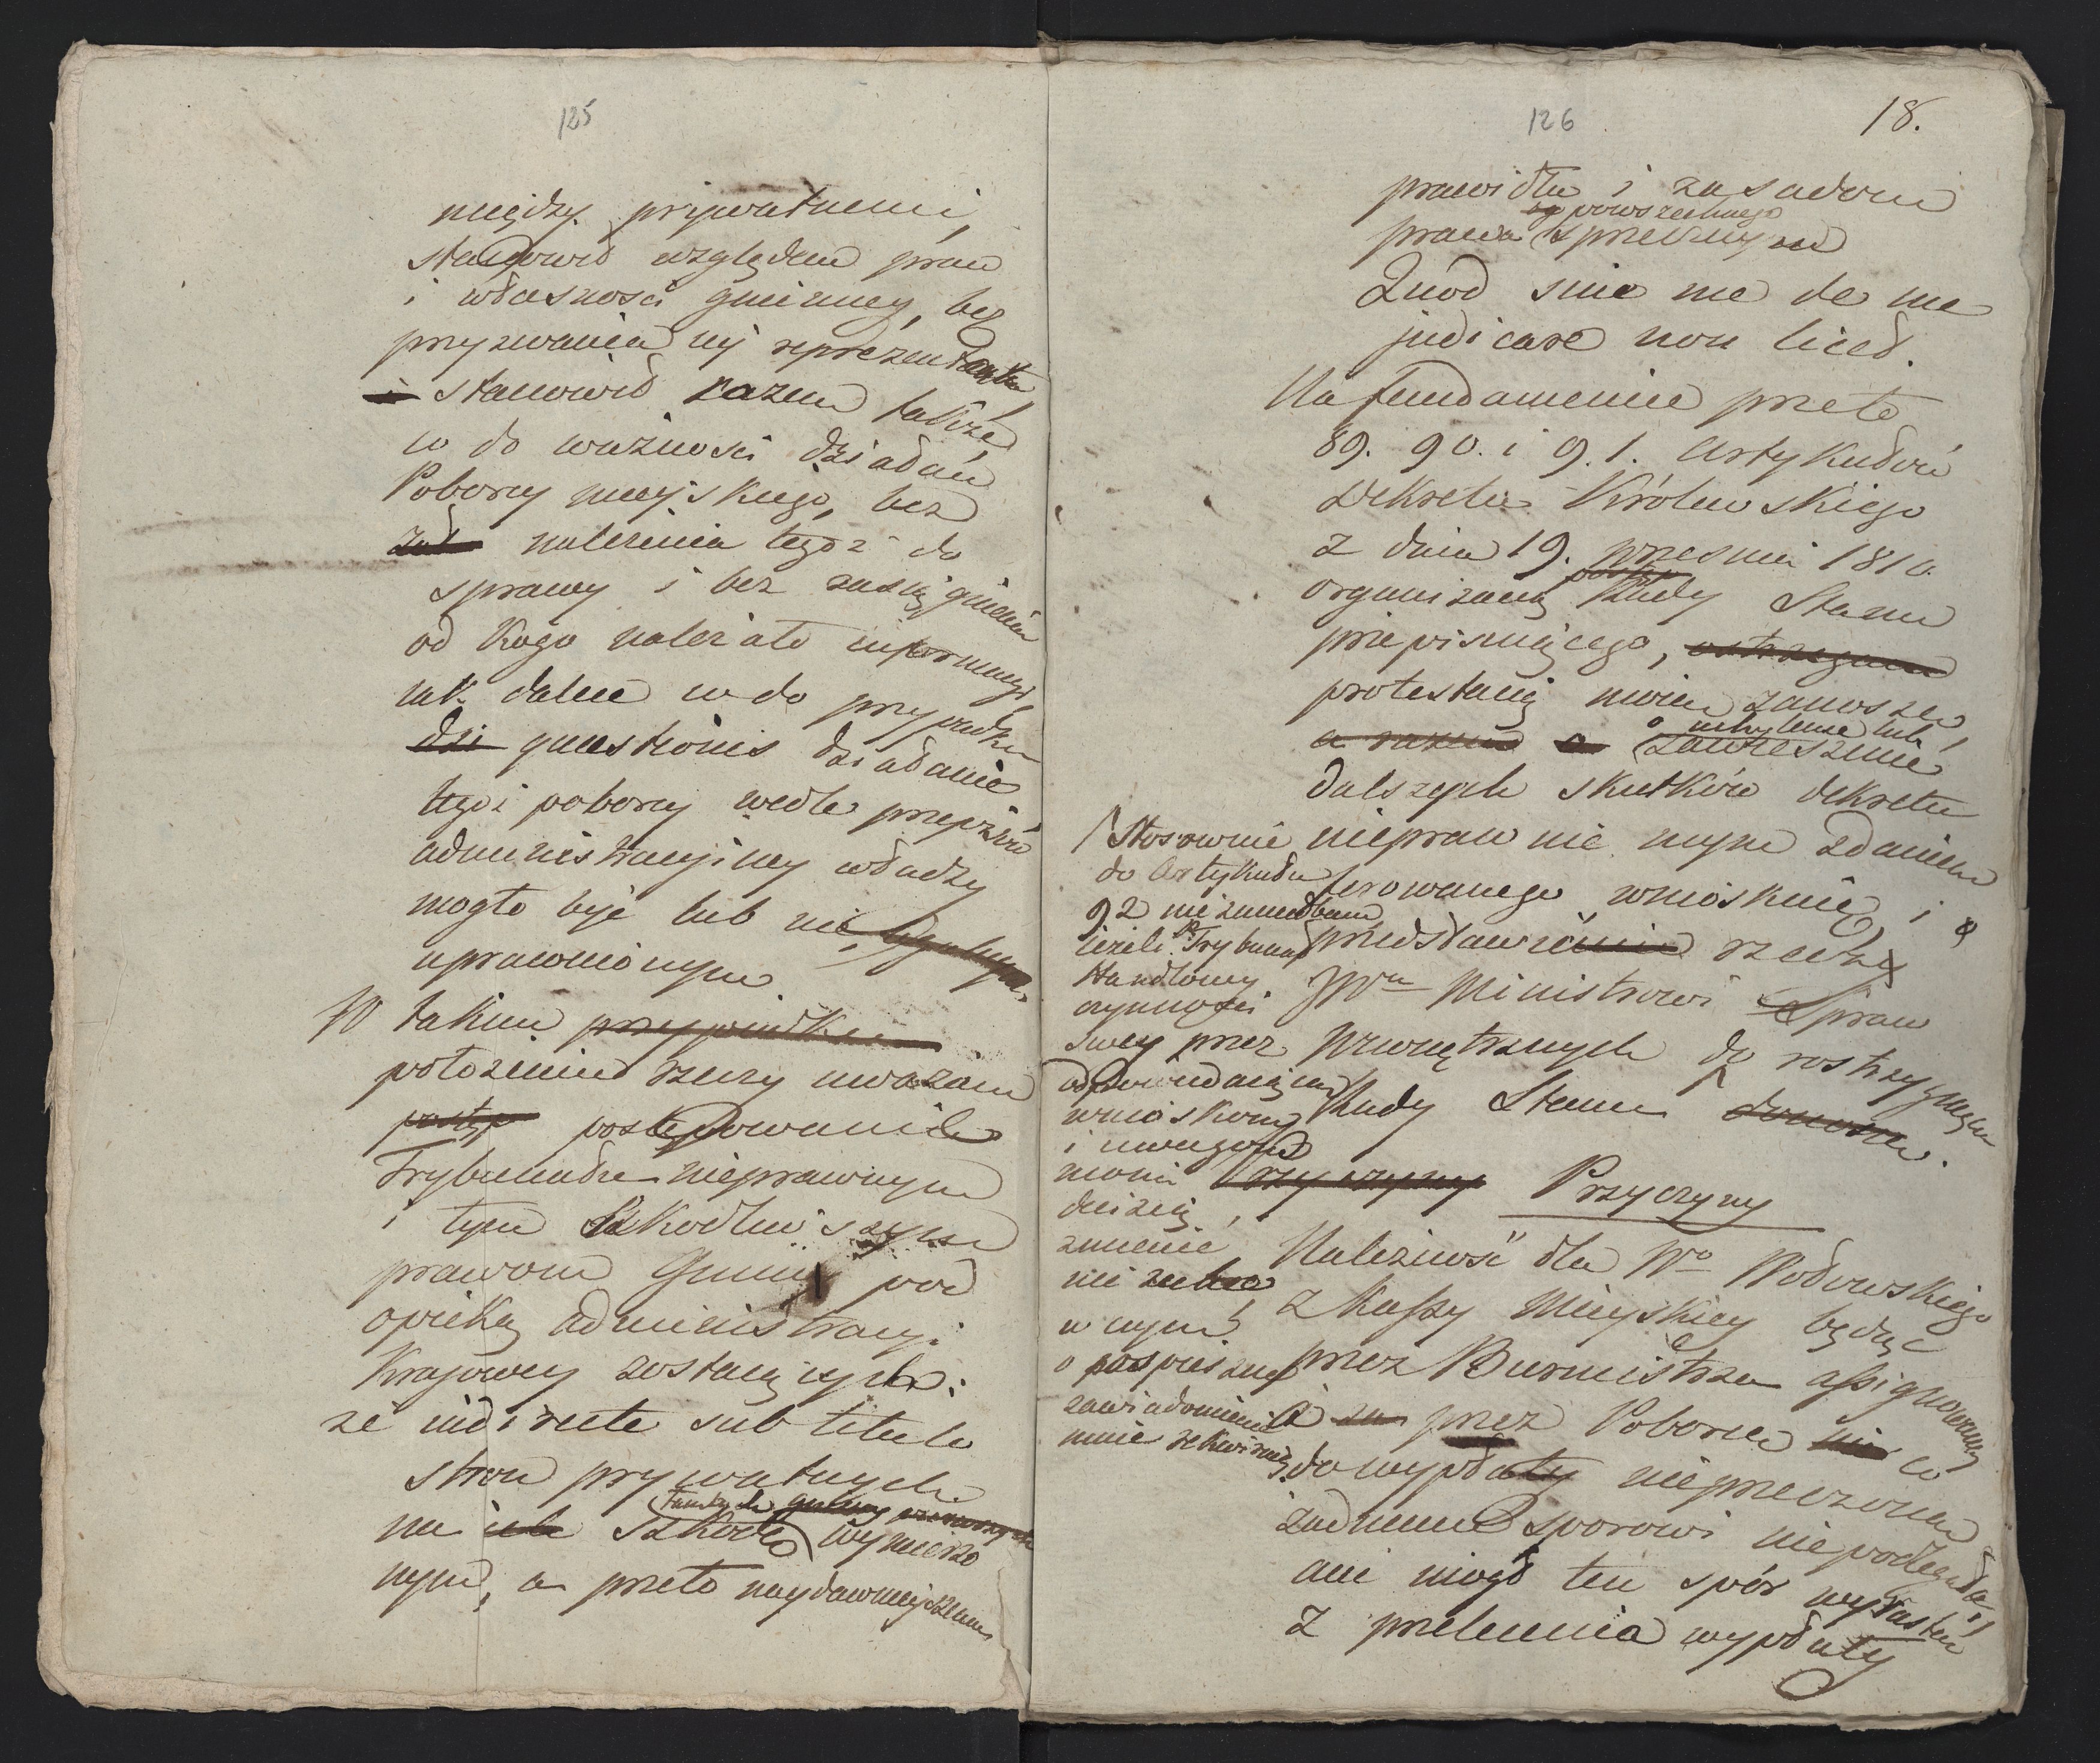 125
między prywatnemi,
stanowić względem praw
i własności gminney, bez
przyzwania iey reprezentanta,
i stanowić razem także
co do ważności działań
Poborcy mieyskiego, bez
żad należenia tegoż do
sprawy i bez zasiągnienia
od kogo należało informacyi,
jak dalece co do przypadku
dzi questionis działanie
tegoż poborcy wedle przepisów
administracyiney władzy
mogło być lub nie,
uprawnionym
W takim przypadku
położeniu rzeczy uważam
postęp postępowanie
Trybunału nieprawnym
i tym szkodliwszym
prawom Gminy pod
opieką administracyi
Krajowey zostaiących:
że indirecte sub titulo
stron prywatnych
na ich szkodę wymierzo
nym, a przeto naydawnieyszemu
126
18.
prawidłu i zasadom
powszechnego
prawa sprzecznym
Quod sine me de me
judicare non liced.
Na fundamencie przeto
89. 90. i 91. Artykułów
Dekretu Królewskiego
z dnia 19. wrzesnia 1810.
postęp
organizacyą Rady Stanu
przepisuiącego, ostrzegam
protestacyą moią zanoszę,
uchylenie lub
a razem o zawieszenie
dalszych skutków dekretu
nieprawnie mym zdaniem
ferowanego wnioskuię, i
przedstawienie rzeczy
JWmu Ministrowi Spraw
Wewnętrznych do rostrzygnien
Rady Stanu donoszę.
/ Stosownie
do Artykułu
92 niezaniedbam
ieżeli Trybunał
Handlowy
czynności
swey przez
odpowiadaiącą
wnioskom
i uwagom
moim
decizią,
zmienić
nie zechce
w czym
o pospieszne
zawiadomienie
mnie rekwiruię.
Przyczyny Przyczyny
Należność dla Wo Wodowskiego
z Kassy Mieyskiey będąc
przez Burmistrza assignowaną
a za przez Poborcę nie co
do wypłaty nieprzeczona
żadnemu sporowi niepodlegała,
ani mógł ten spór wyrastać
z przelania wypłaty